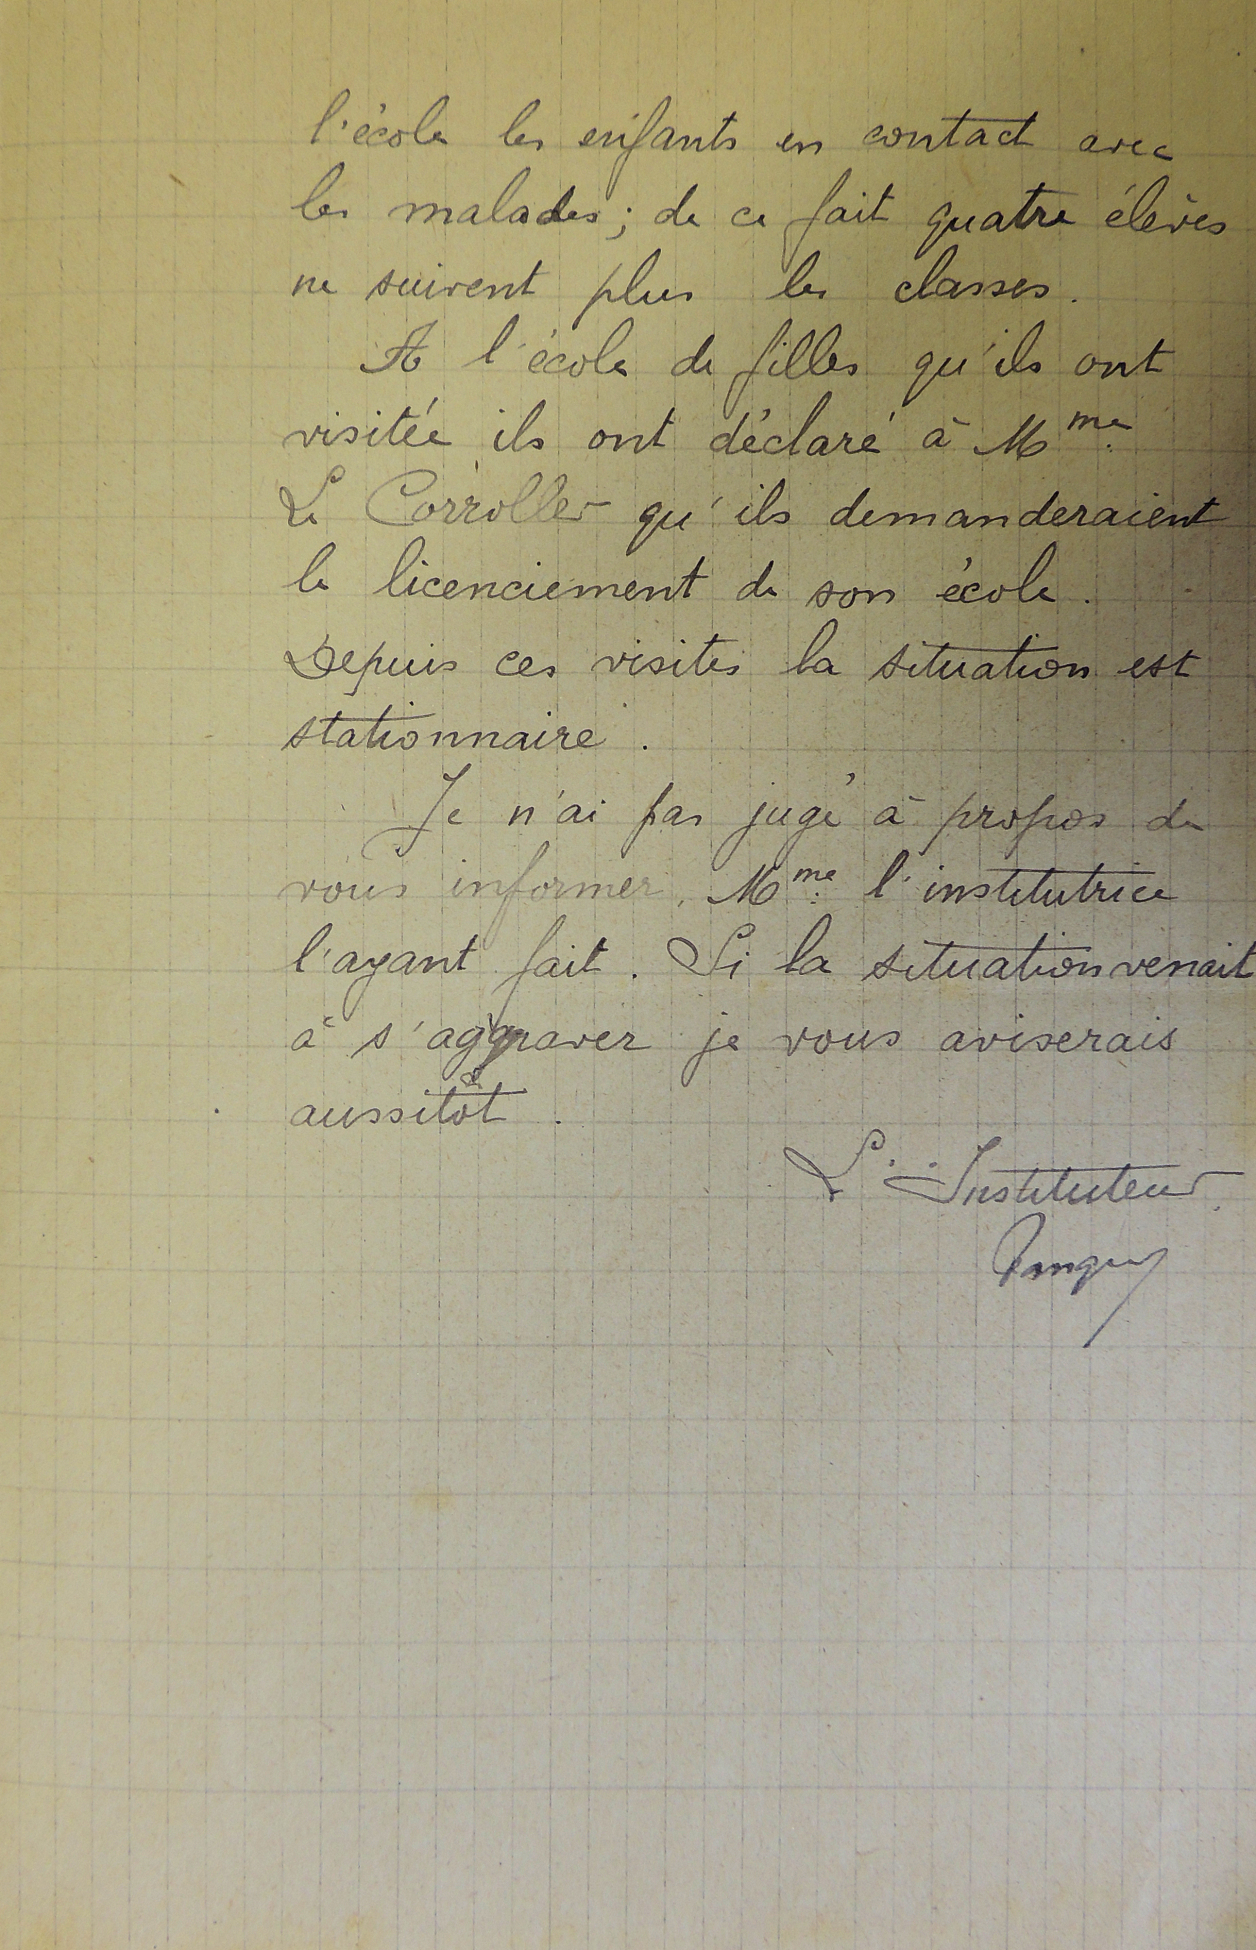 l'école les enfants en contact avec
les malades ; de ce fait quatre élèves
ne suivent plus les classes.
A l'école de filles qu'ils ont
visitée ils ont déclaré à Mme
Le Corroller qu'ils demanderaient
le licenciement de son école.
Depuis ces visites la situation est
stationnaire.
Je n'ai pas jugé à propos de
vous informer, Mme l'institutrice
l'ayant fait. Si la situation venait
à s'aggraver je vous aviserais
aussitôt.
L'Instituteur.
Tanguy